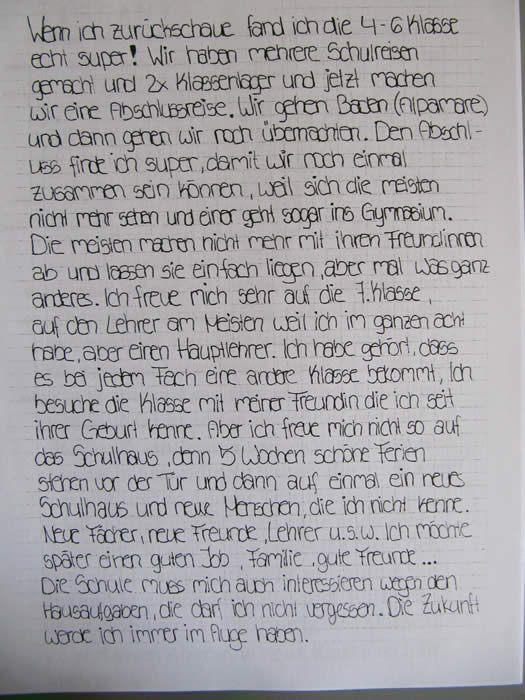 Wenn ich zurückschaue fand ich die 4-6 Klasse
echt super! Wir haben mehrere Schulreisen
gemacht und 2x Klassenlager und jetzt machen
wir eine Abschlussreise. Wir gehen Baden (Alpamare)
und dann gehen wir noch übernachten. Den Abschl-
uss finde ich super, damit wir noch einmal
zusammen sein können, weil sich die meisten
nicht mehr sehen und einer geht sogar ins Gymnasium.
Die meisten machen nicht mehr mit ihren Freundinnen
ab und lassen sie einfach liegen, aber mal was ganz
anderes. Ich freue mich sehr auf die 7. Klasse,
auf den Lehrer am Meisten weil ich im ganzen acht
habe, aber einen Hauptlehrer. Ich habe gehört, dass
es bei jedem Fach eine andere Klasse bekommt, Ich
besuche die Klasse mit meiner Freundin die ich seit
ihrer Geburt kenne. Aber ich freue mich nicht so auf
das Schulhaus, denn 5 Wochen schöne Ferien
stehen vor der Tür und dann auf einmal ein neues
Schulhaus und neue Menschen, die ich nicht kenne.
Neue Fächer, neue Freunde, Lehrer u.s.w. Ich möchte
später einen guten Job, Familie, gute Freunde...
Die Schule muss mich auch interessieren wegen den
Hausaufgaben, die darf ich nicht vergessen. Die Zukunft
werde ich immer im Auge haben.